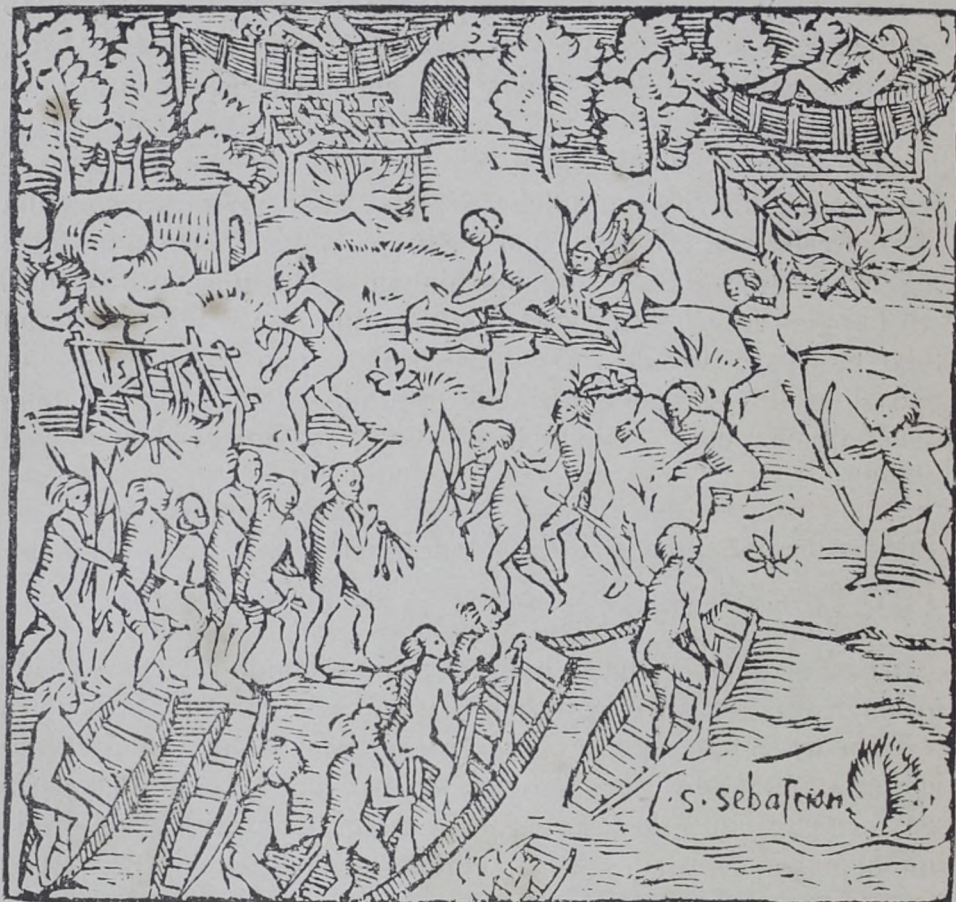 ·S·Sebastian